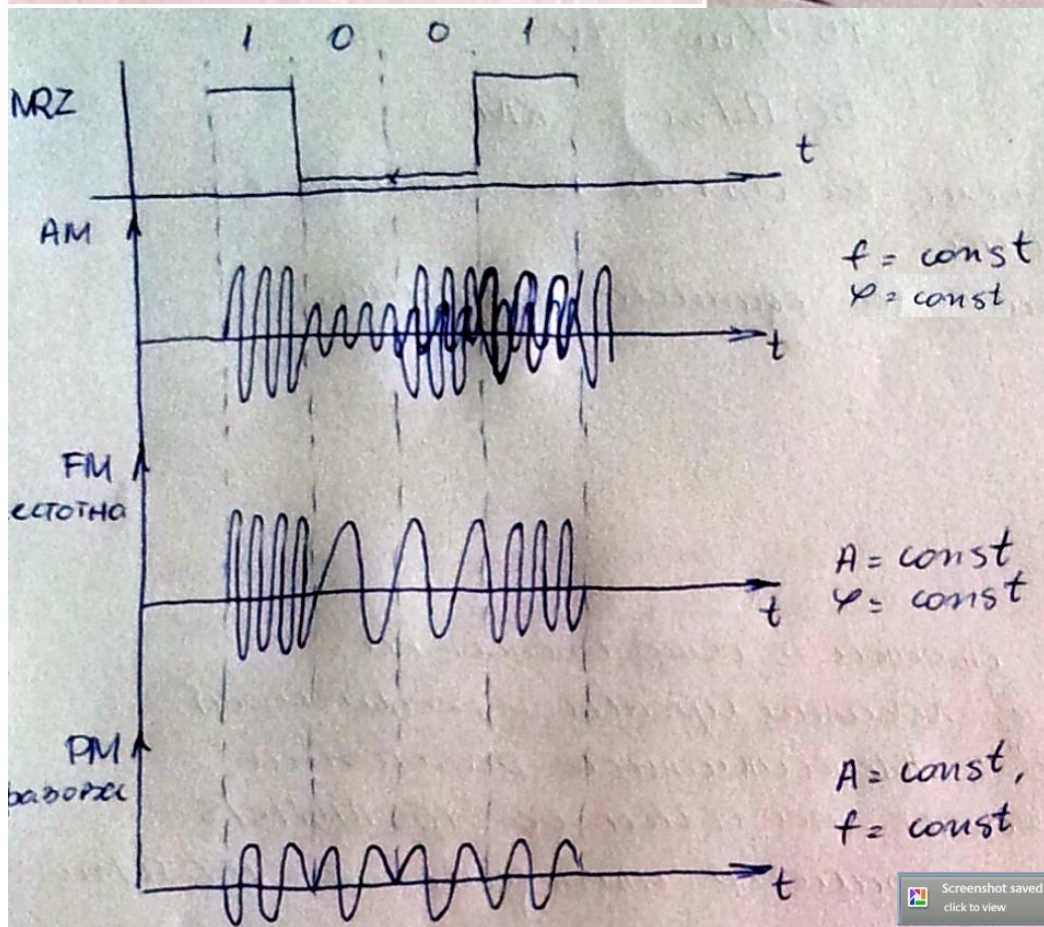 1 0 0 1
NRZ
t
AM
f = const
φ = const
t
FM
A = const
φ = const
t
PM
A = const,
f = const
t
Screenshot saved
click to view